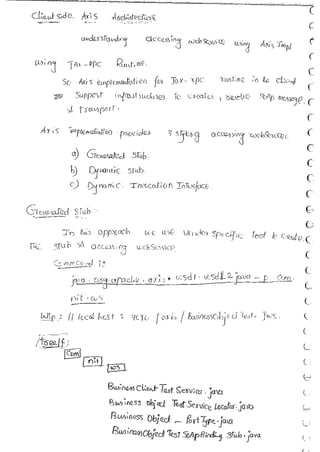 Client side Axis Architecture
understanding accessing webservice using Axis Impl
using Jax-rpc Runtime.
So Axis implementation for Jax-rpc running in to client
Support infrastructures to creates, send SOAP message.
& transport.
Axis implementation provides 3 styles accessing webservices.
a) Generated Stub.
b) Dynamic Stub.
c) Dynamic Invocation Interface.
Generated Stub:
In this approach we use vendor specific tool to create
the stub & accessing webservice.
Command is
java org.apache.axis.wsdl.wsdl2java -p com.
nit.ws
http://localhost:7070/axis/BusinessObjectTest.jws.
Itself:
com
nit
ws
Business Client Test Service.java
Business object Test Service Locator.java
Business Object - PortType.java
BusinessObject Test SoapBinding Stub.java